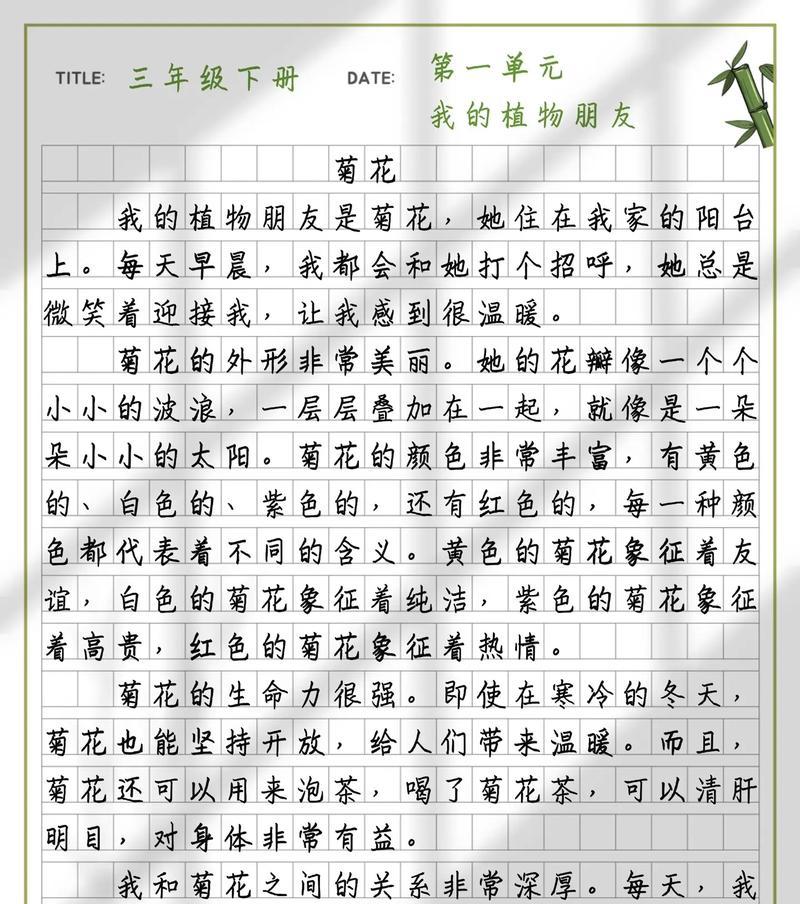 TITLE: 三年级下册 DATE: 第一单元
我的植物朋友
菊花
我的植物朋友是菊花，她住在我家的阳台
上。每天早晨，我都会和她打个招呼，她总是
微笑着迎接我，让我感到很温暖。
菊花的外形非常美丽。她的花瓣像一个个
小小的波浪，一层层叠加在一起，就像是一朵
朵小小的太阳。菊花的颜色非常丰富，有黄色
的、白色的、紫色的，还有红色的，每一种颜
色都代表着不同的含义。黄色的菊花象征着友
谊，白色的菊花象征着纯洁，紫色的菊花象征
着高贵，红色的菊花象征着热情。
菊花的生命力很强。即使在寒冷的冬天，
菊花也能坚持开放，给人们带来温暖。而且，
菊花还可以用来泡茶，喝了菊花茶，可以清肝
明目，对身体非常有益。
我和菊花之间的关系非常深厚。每天，我